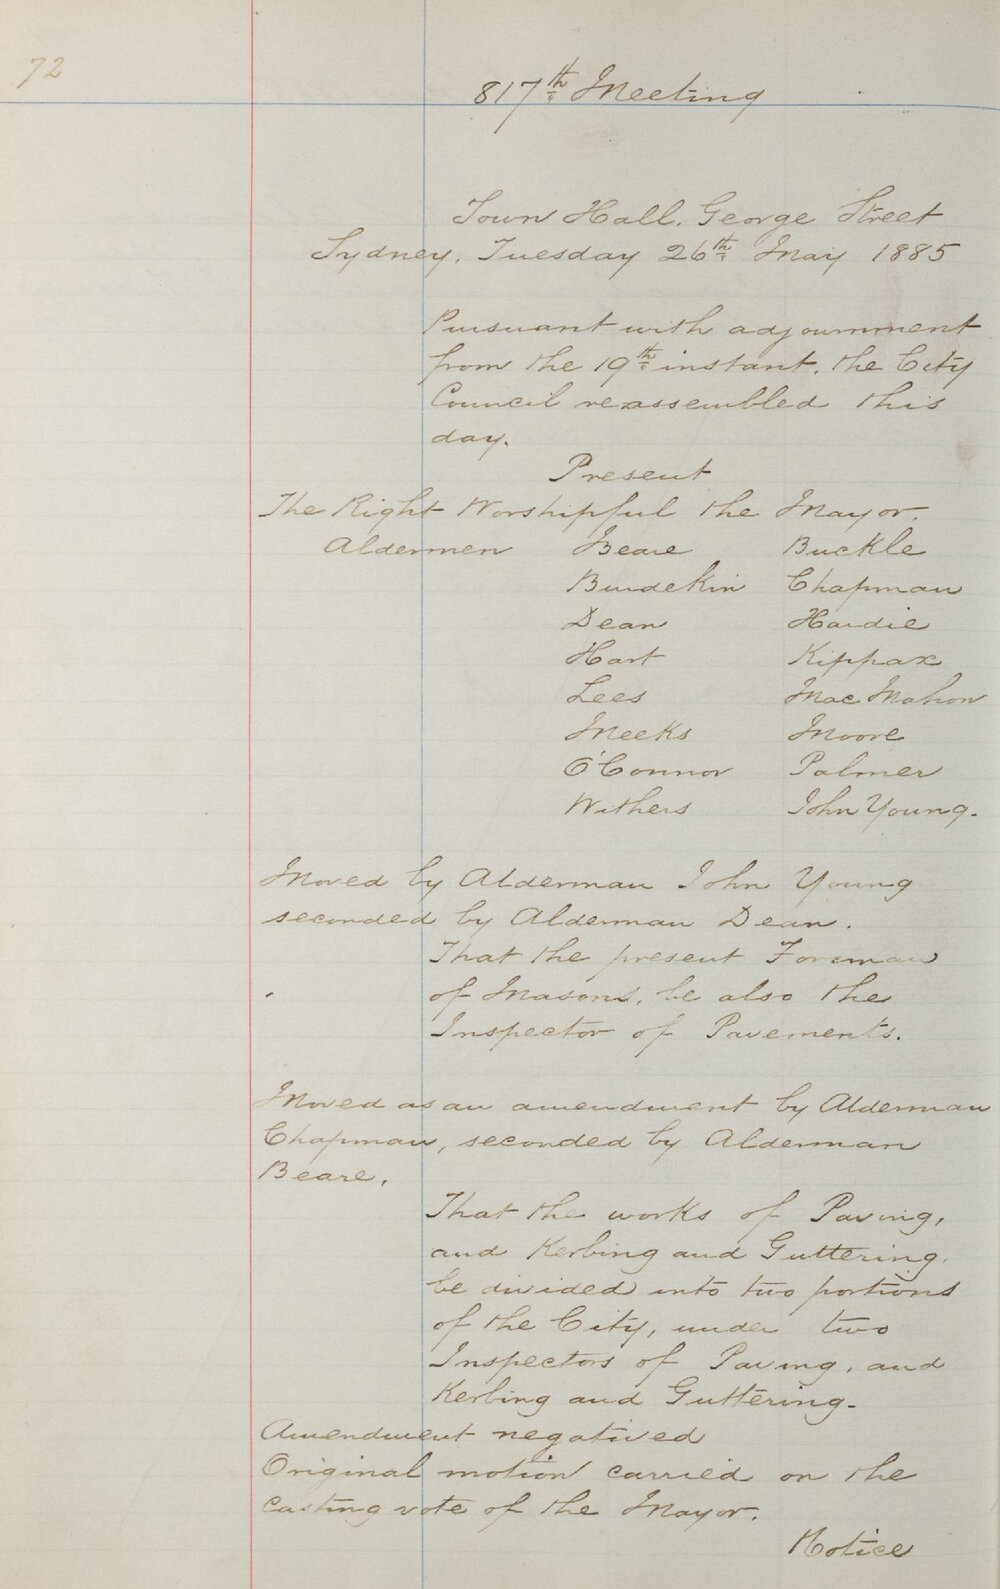 72
817th Meeting
Town Hall. George Street
Sydney. Tuesday 26th May 1885
Pursuant with adjournment
from the 19th instant, the City
Council reassembled this
day.
Present
The Right Worshipful the Mayor.
Aldermen Beare Buckle
Burdekin Chapman
Dean Hardie
Hart Kippax
Lees Mac Mahon
Meeks Moore
O'Connor Palmer
Withers John Young.
Moved by Alderman John Young
seconded by Alderman Dean.
That the present Foreman
of Masons, be also the
Inspector of Pavements.
Moved as an amendment by Alderman
Chapman, seconded by Alderman
Beare,
That the works of Paving,
and Kerbing and Guttering,
be divided into two portions
of the City, under two
Inspectors of Paving, and
Kerbing and Guttering.
Amendment negatived
Original motion carried on the
casting vote of the Mayor.
Notice